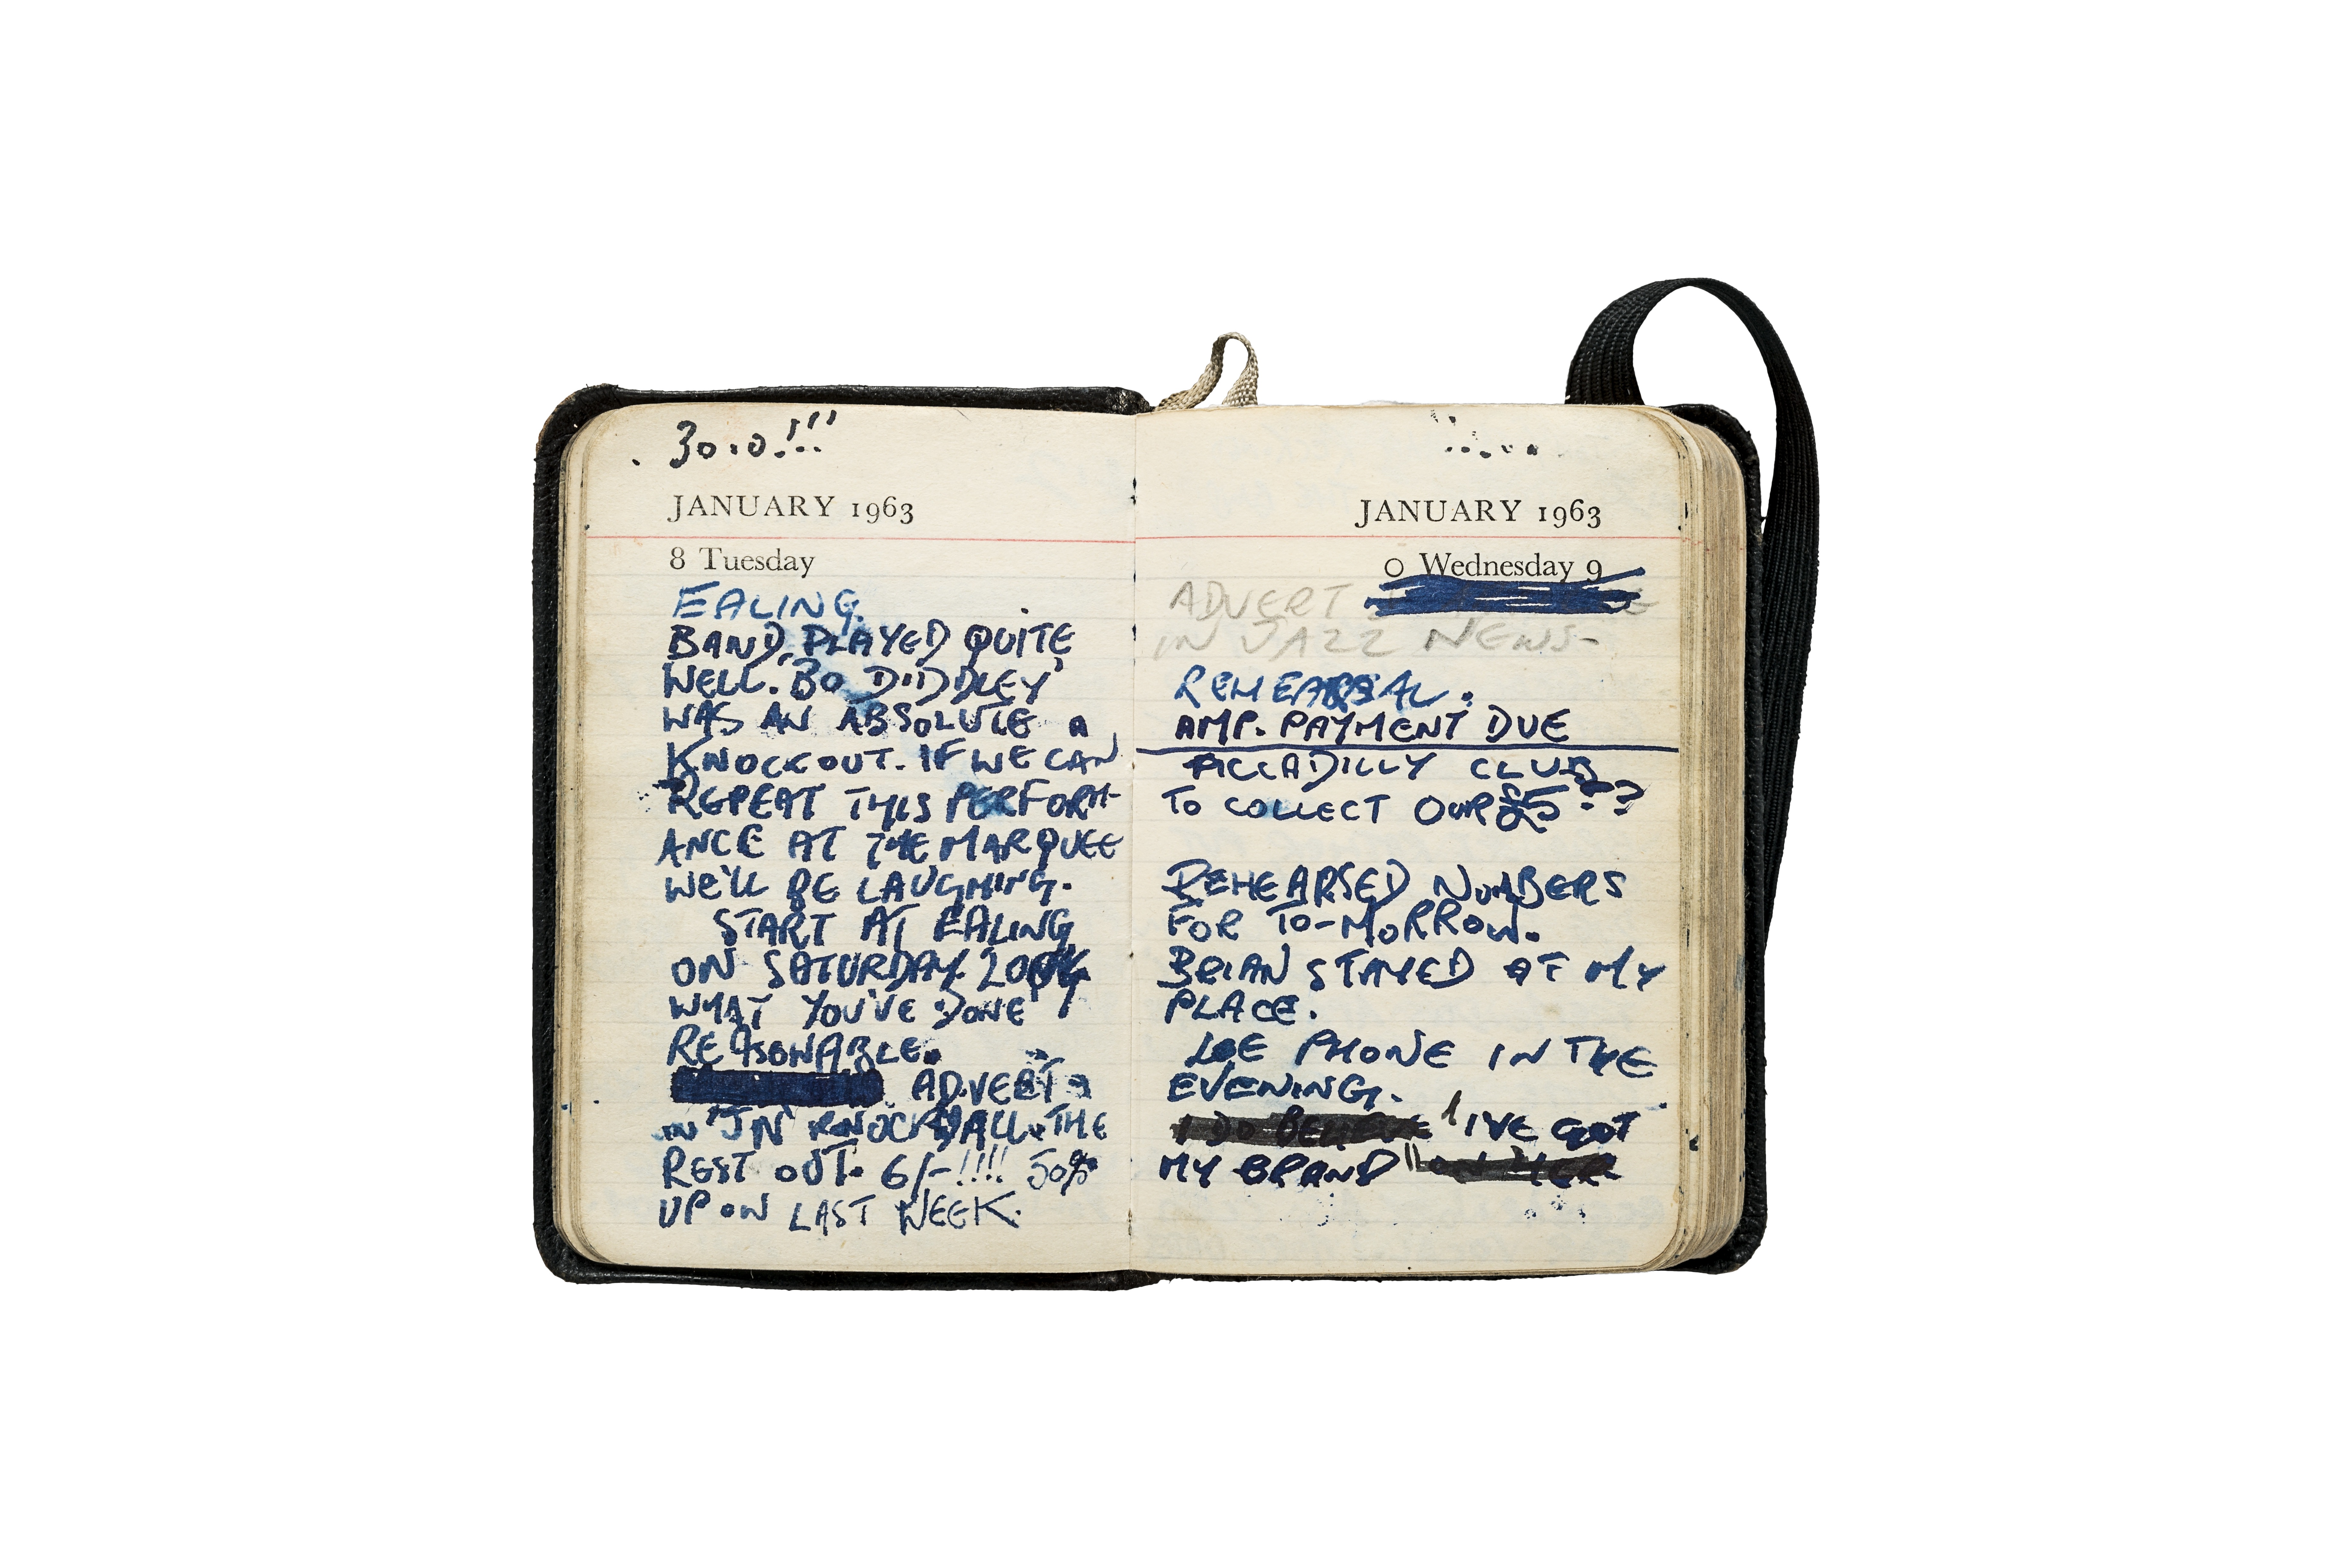 30.0!!!
JANUARY 1963
8 Tuesday
EALING.
BAND PLAYED QUITE
WELL. BO DIDDLEY'
WAS AN ABSOLUTE a
KNOCKOUT. IF WE CAN
REPEAT THIS PERFORM-
ANCE AT THE MARQUEE
WE'LL BE LAUGHING.
START AT EALING
ON SATURDAY.
WHAT YOU'VE DONE
REASONABLE.
ADVERT
IN "JN" KNOCKS ALL THE
REST OUT. 6/-!!!! 50%
UP ON LAST WEEK.
JANUARY 1963
O Wednesday 9
ADVERT
IN JAZZ NEWS-
REHEARSAL.
AMP. PAYMENT DUE
PICCADILLY CLUB
TO COLLECT OUR £5??
REHEARSED NUMBERS
FOR TO-MORROW.
BRIAN STAYED AT MY
PLACE.
PHONE IN THE
EVENING.
I DO BELIEVE I'VE GOT
MY BRAND" ON HER